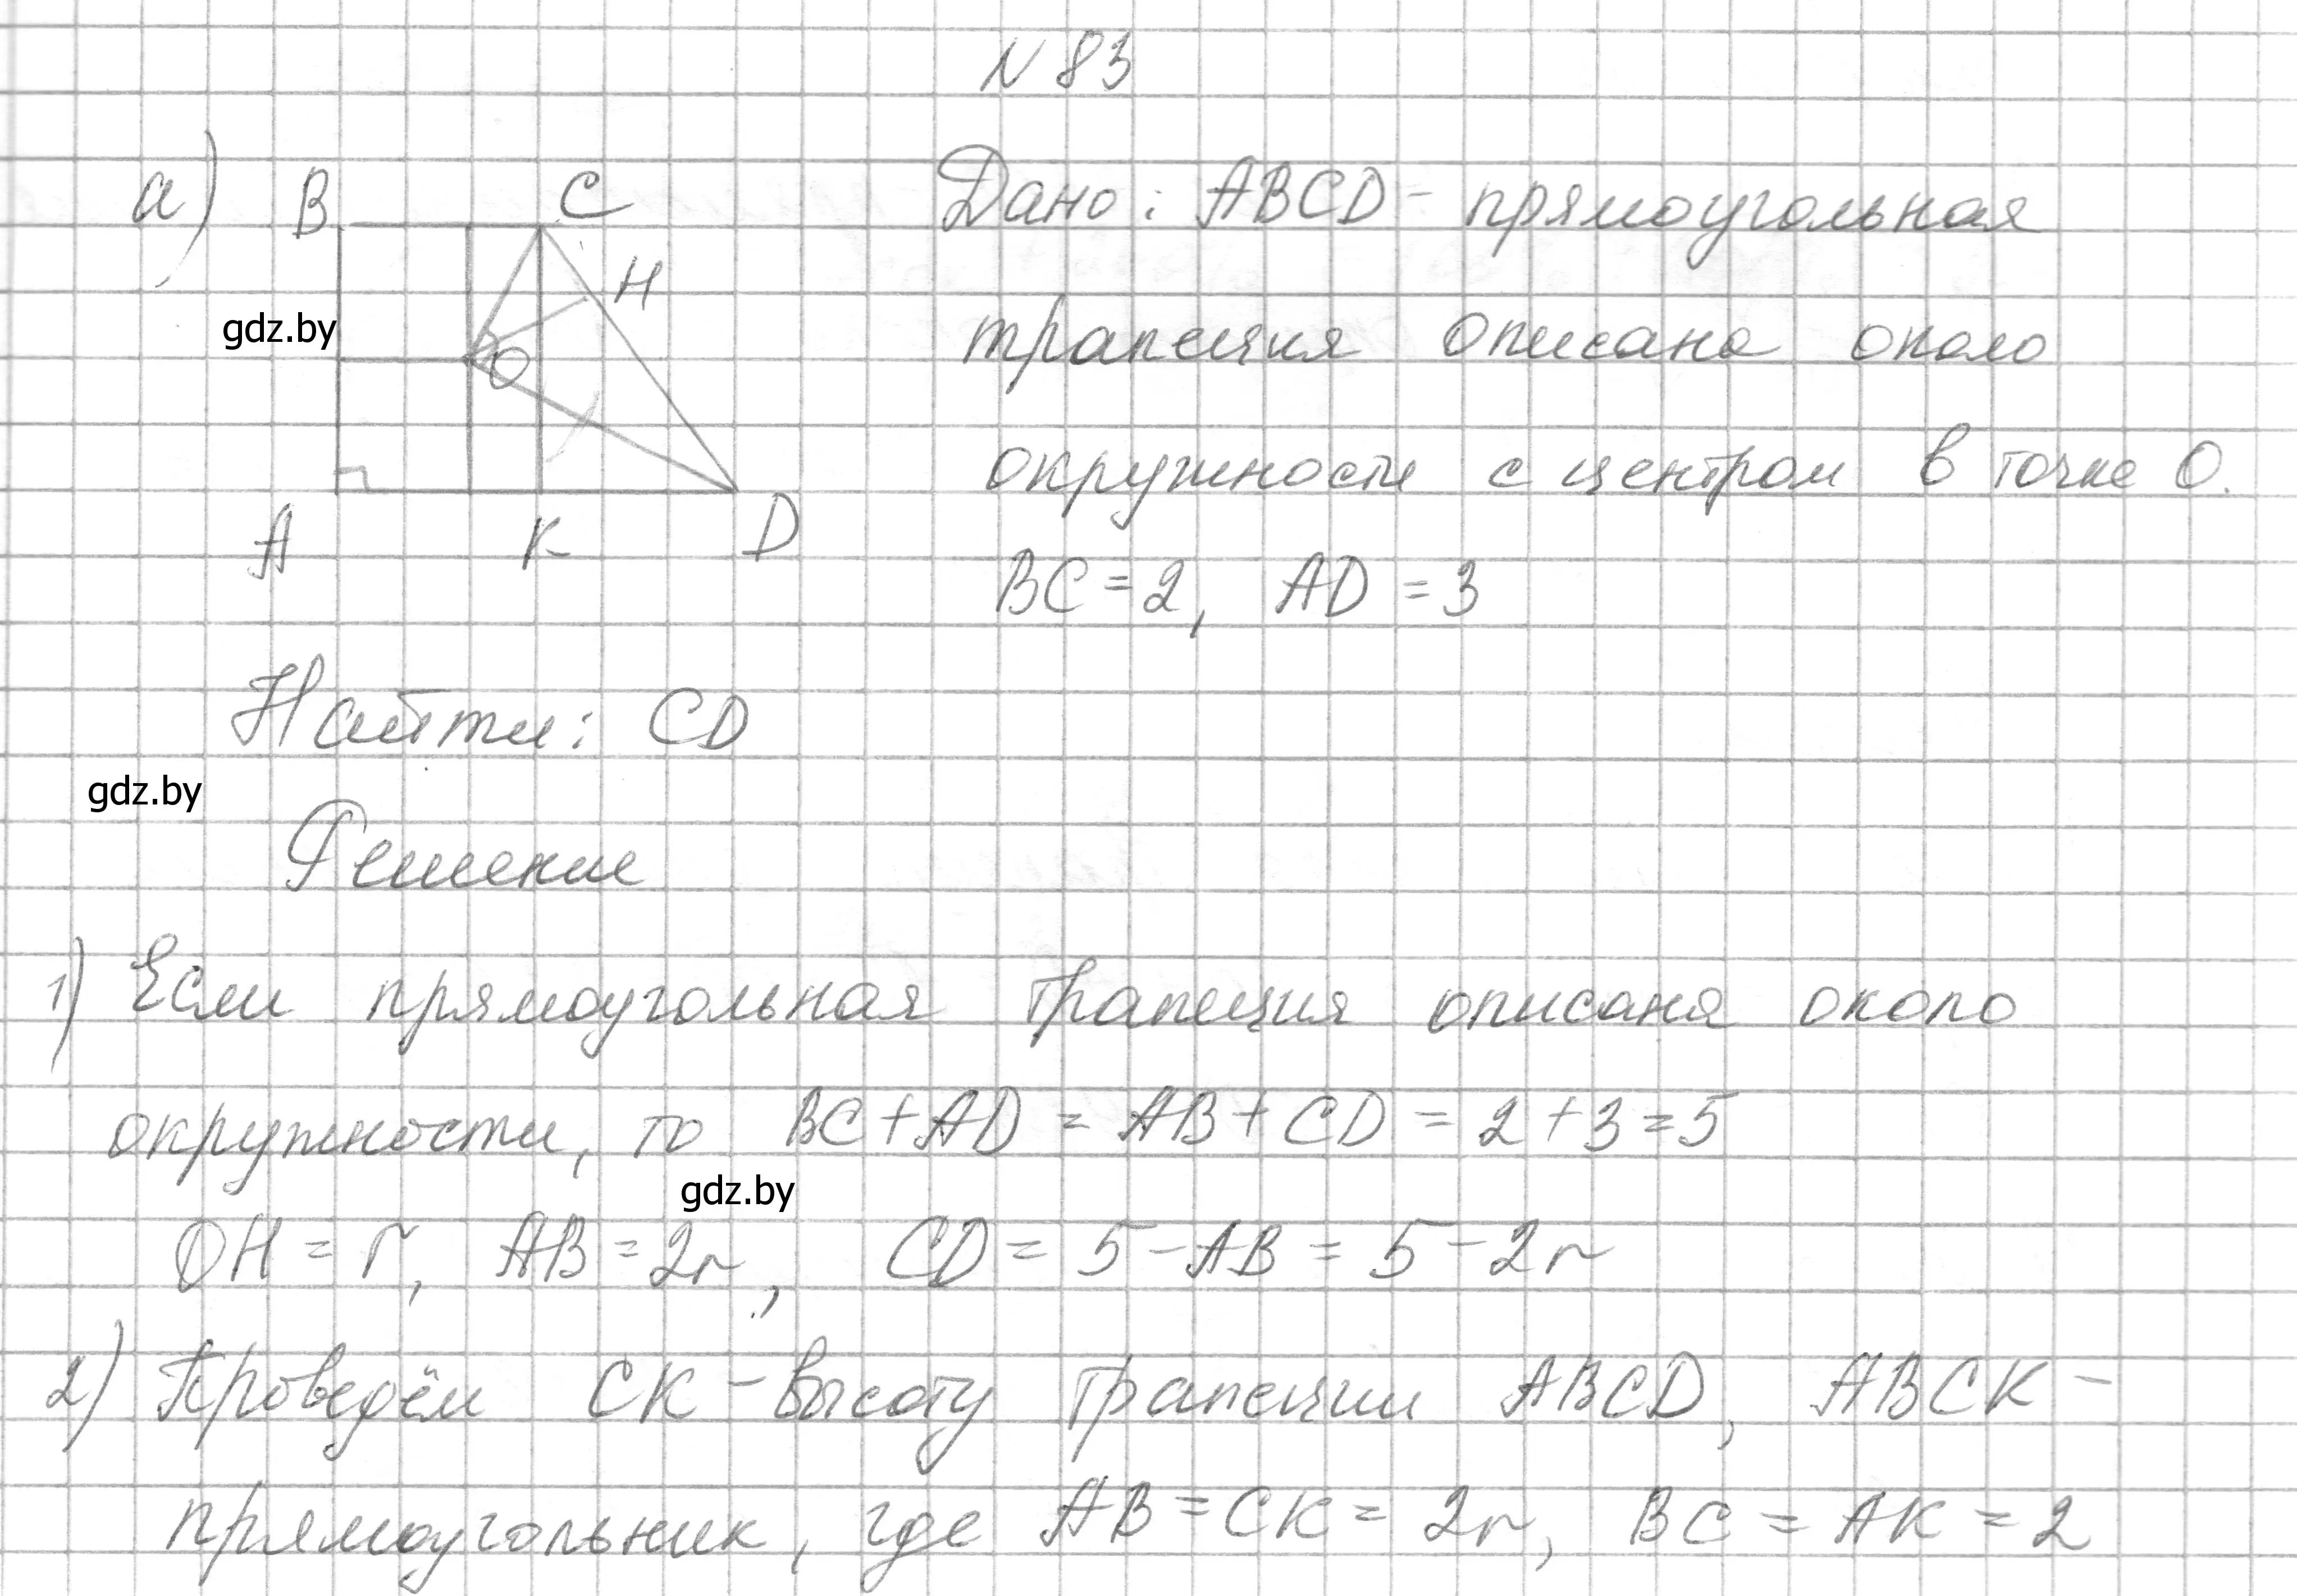 N 83
а) B C
H
gdz.by
O
A K D
Дано: ABCD - прямоугольная
трапеция описана около
окружности с центром в точке O.
BC = 2, AD = 3
Найти: CD
gdz.by
Решение
1) Если прямоугольная трапеция описана около
окружности, то BC + AD = AB + CD = 2 + 3 = 5
gdz.by
OH = r, AB = 2r, CD = 5 - AB = 5 - 2r
2) Проведём CK - высоту трапеции ABCD, ABCK -
прямоугольник, где AB = CK = 2r, BC = AK = 2